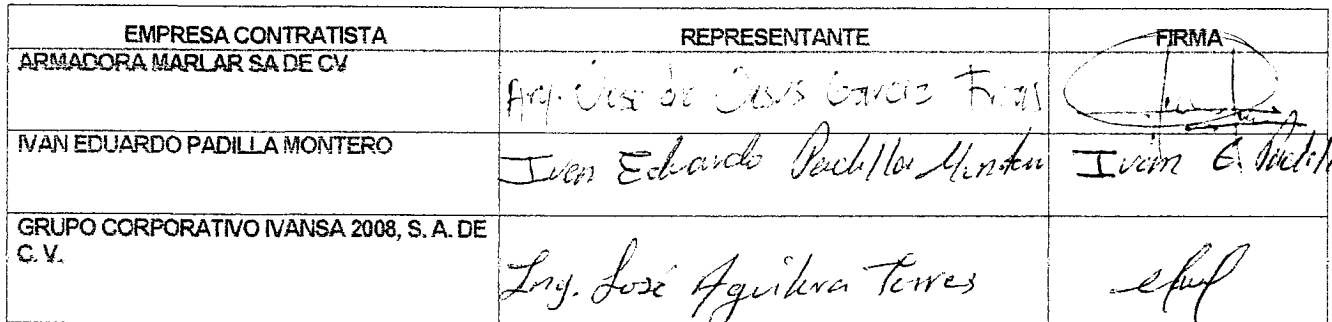 EMPRESA CONTRATISTA REPRESENTANTE FIRMA
ARMADORA MARLAR SA DE CV
Arq. Jose de Jesus Garcia Frias
IVAN EDUARDO PADILLA MONTERO
Ivan Eduardo Padilla Montero Ivan E. Padilla
GRUPO CORPORATIVO IVANSA 2008, S. A. DE
C. V.
Ing. José Aguilera Torres